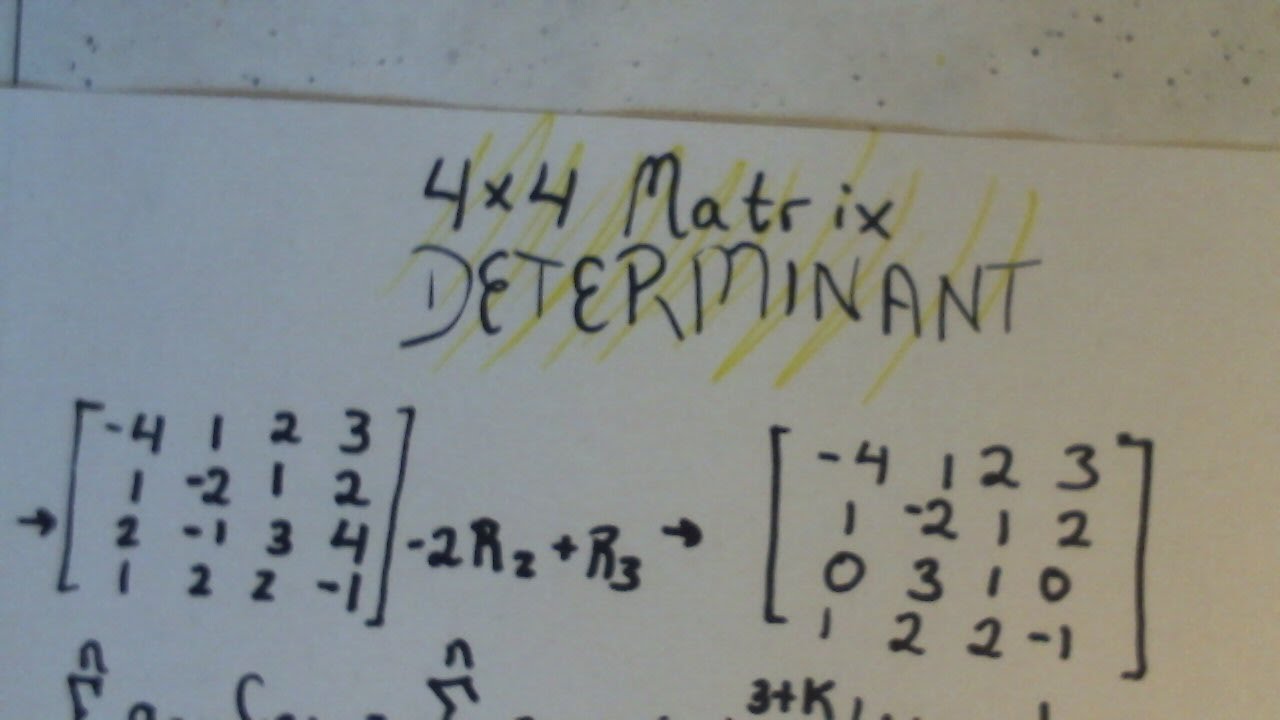 4×4 Matrix
DETERMINANT
-4 1 2 3
1 -2 1 2
2 -1 3 4
1 2 2 -1
-2R₂ + R₃ →
-4 1 2 3
1 -2 1 2
0 3 1 0
1 2 2 -1
n n
3+K